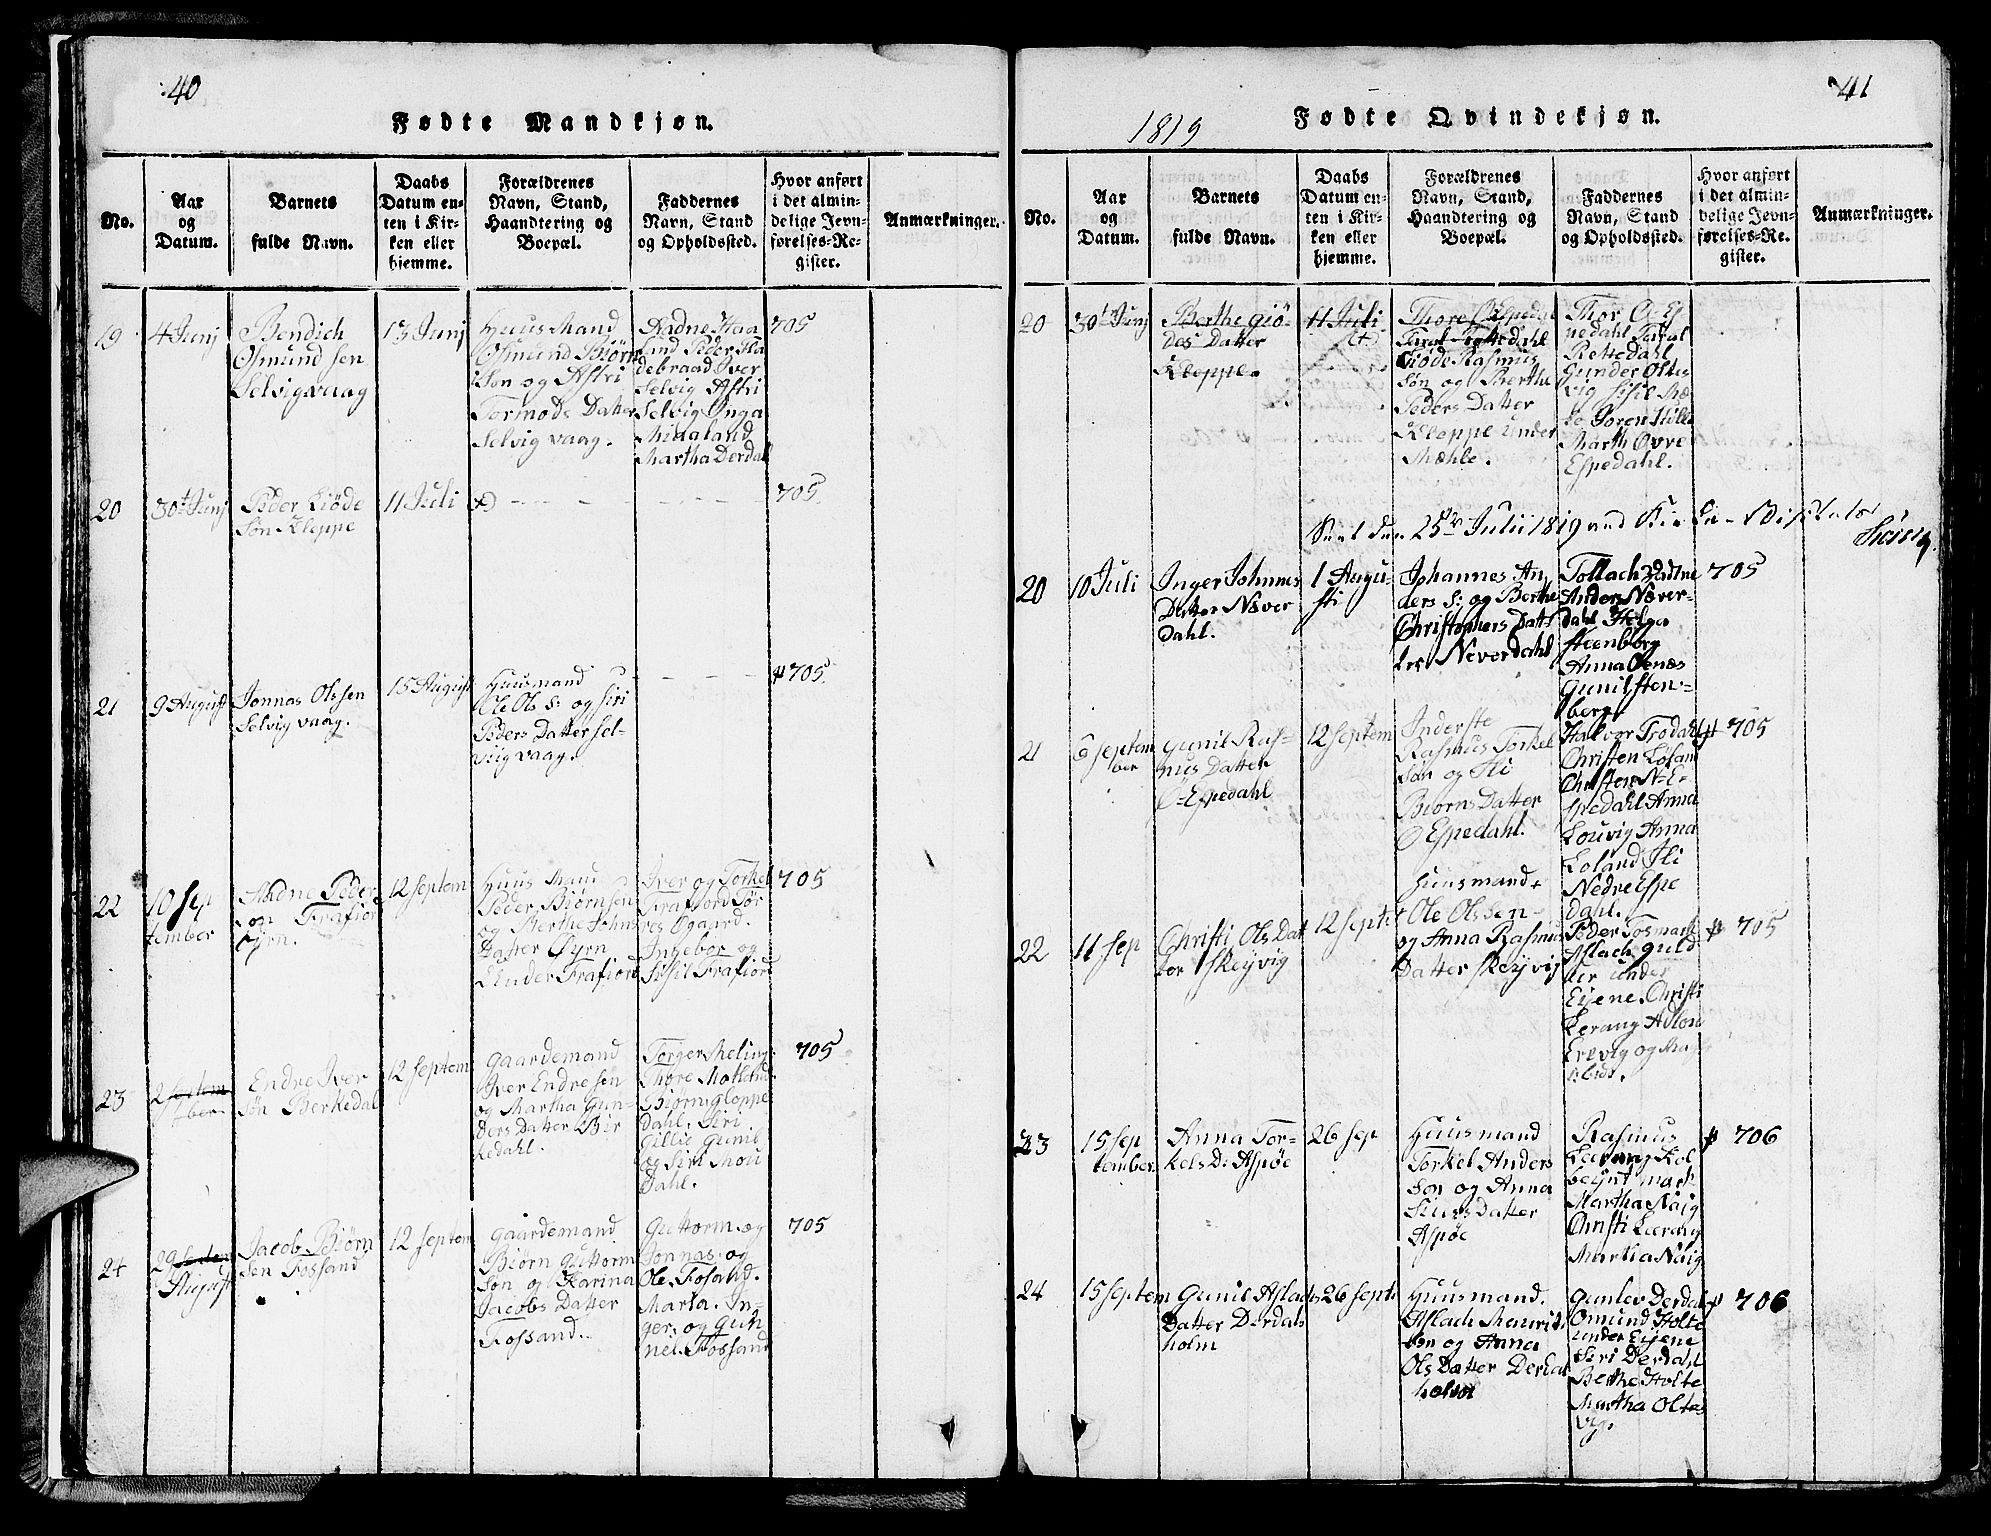 40
Fødte Mandkjøn.
No.
Aar
og
Datum.
Barnets
fulde Navn.
Daabs
Datum en-
ten i Kir-
ken eller
hjemme.
Forældrenes
Navn, Stand,
Haandtering og
Boepæl.
Faddernes
Navn, Stand
og Opholdssted.
Hvor anført
i det almin-
delige Jevn-
førelses-Re-
gister.
Anmærkninger.
19
4 Junj
Bendich
Osmund sen
Selvigvaag
13 Junj
Huus Mand
Osmund Biørn
Søn og Astri
Tormods Datter
Selvig vaag.
Aadne Haa
land Peder Ha
debraad Iver
Selvig Astri
Selvig Inga
Midaland
Martha Derdal
705
20
30t Junj
Peder Giøde
Søn Kleppe
11 Juli
705
21
9 August
Jonnas Olssen
Selvig vaag.
15 August
Huusmand
Ole Ols S: og Siri
Peders Datter Sel-
viig vaag.
705.
22
10 Sep
tember
Aadne Peder
søn Frafiord
Øyrn.
12 Septem
Huus Mand
Peder Biørnsen
og Berthe Johns
Datter Øyrn
Under Frafiord
Iver og Torkel
Frafiord Tør
res Ogaard.
Ingebor og
Sisil Frafiord
705
23
2 Septem
ber
Endre Iver
Søn Berkedal
12 Septem
Gaardemand
Iver Endresen
og Martha Gun-
ders Datter Bir
kedahl.
Torger Meling
Thore Motland
Biørn Gloppe
Dahl. Siri
Gillie Gunil
og Siri Mou
Dahl.
705
24
29 Septem
August
Jacob Biørn
Sen Fossand
12 Septem
Gaardemand
Biørn Guttorm
Søn og Karina
Jacobs Datter
Fossand.
Guttorm og
Jonnas og
Ole Fosand.
Marta. In-
ger. og Gun
nil. Fossand
705
41
1819
Fødte Qvindekjøn.
No.
Aar
og
Datum.
Barnets
fulde Navn.
Daabs
Datum en-
ten i Kir-
ken eller
hjemme.
Forældrenes
Navn, Stand,
Haandtering og
Boepæl.
Faddernes
Navn, Stand
og Opholdssted.
Hvor anført
i det almin-
delige Jevn-
førelses-Re-
gister.
Anmærkninger.
20
30t Junj
Berthe Giø-
des Datter
Kleppe.
11 Juli
Giøde Rasmus
søn og Berthe
Peders Datter
Kleppe under
Mæhle.
Thor Ø Es
pedahl
Rettedahl
Gunder Oltes
vig Sisil Mæ
le Joren Hille
Marth Øvre
Espedahl.
25de Julii 1819
20
10 Juli
Inger Johnnes
Datter Næver
Dahl.
1 Augu-
sti
Johannes An
ders S: og Berthe
Christophers Datt
ter Neverdahl
Tollach Aadne
Anders Næver-
dahl Helga
Steenborg
Anna Oenæs
Gunil Sten-
berg
705
21
6 Septem
ber
Gunil Ras-
mus Datter
Ø-Espedahl
12 Septem
Inderste
Rasmus Torkel
Søn og Eli
Biorns Datter
Ø Espedahl.
Halvor Trodahl
Christen Løland
Christen N-E-
spedahl Anna
Louvig Anna
Loland Eli
Nedre Espe
dahl.
705
22
11 Sep
Christi Ols Dat
ter Skeyvig
12 Septe
Huusmand
Ole Olssen
og Anna Rasmus
Datter Skeyvig
Peder Tosmark
Aslach Guld
lier under
Eijene. Christi
Lerang
Erevig og
705
23
15 Sep
tember
Anna Tor-
kels D: Aspøe
26 Sep
Huusmand
Torkel Anders
Søn og Anna
Siurs Datter
Aspøe
Rasmus
Lærang Kol
beijnt mark
Martha Naig
Christi Lærang
Martha Naig
706
24
15 Septem
Gunil Aslachs
Datter Derdals
holm
26 Septe
Huusmand.
Aslach Mauritz
Søn og Anna
Ols Datter Derdal
holm
Gunlev Derdal
Omund Holte
under Eijene
Siri Derdahl
Berthe Holte
Martha Oltes
vig.
706